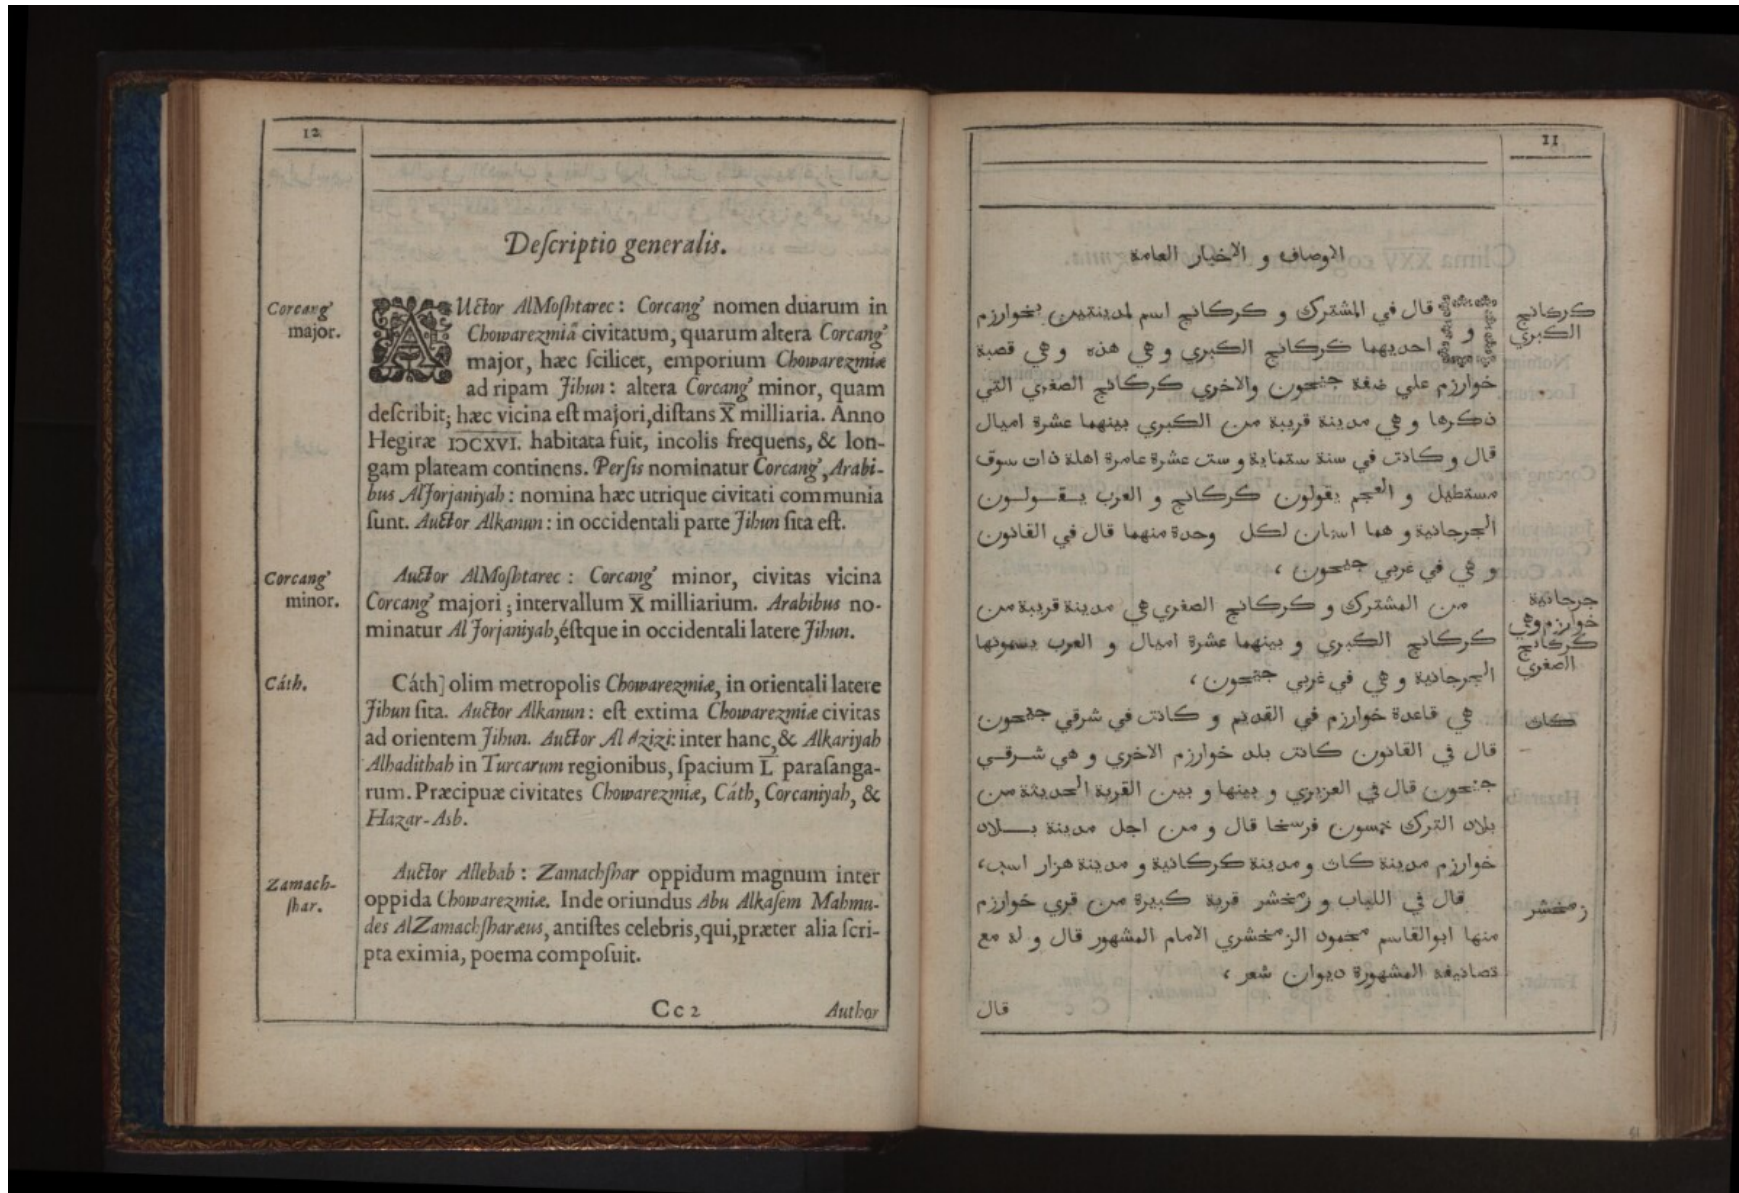 12
Descriptio generalis.
Corcang'
major.
AUctor AlMoshtarec: Corcang' nomen duarum in
Chowarezmiâ civitatum, quarum altera Corcang'
major, hæc scilicet, emporium Chowarezmiæ
ad ripam Jihun: altera Corcang' minor, quam
describit; hæc vicina est majori, distans X̅ milliaria. Anno
Hegiræ I̅Ɔ̅C̅X̅V̅I̅. habitata fuit, incolis frequens, & lon-
gam plateam continens. Persis nominatur Corcang', Arabi-
bus AlJorjaniyah: nomina hæc utrique civitati communia
sunt. Auctor Alkanun: in occidentali parte Jihun sita est.
Corcang'
minor.
Auctor AlMoshtarec: Corcang' minor, civitas vicina
Corcang' majori; intervallum X̅ milliarium. Arabibus no-
minatur Al Jorjaniyah, éstque in occidentali latere Jihun.
Cáth.
Cáth] olim metropolis Chowarezmiæ, in orientali latere
Jihun sita. Auctor Alkanun: est extima Chowarezmiæ civitas
ad orientem Jihun. Auctor Al Azizi: inter hanc, & Alkariyah
Alhadithah in Turcarum regionibus, spacium L̅ parasanga-
rum. Præcipuæ civitates Chowarezmiæ, Cáth, Corcaniyah, &
Hazar-Asb.
Zamach-
shar.
Auctor Allebab: Zamachshar oppidum magnum inter
oppida Chowarezmiæ. Inde oriundus Abu Alkasem Mahmu-
des AlZamachsharæus, antistes celebris, qui, præter alia scri-
pta eximia, poema composuit.
Cc 2
Author
11
الاوصاف و الاخبار العامة
كركانج
الكبري
و قال في المشترك و كركانج اسم لمدينتين بخوارزم
احديهما كركانج الكبري و هي هذه و هي قصبة
خوارزم علي ضفة جيحون والاخري كركانج الصغري التي
نذكرها و هي مدينة قريبة من الكبري بينهما عشرة اميال
قال و كانت في سنة ستماية و ست عشرة عامرة اهلة ذات سوق
مستطيل و العجم يقولون كركانج و العرب يـقـولـون
الجرجانية و هما اسمان لكل وحدة منهما قال في القانون
و هي في غربي جيحون ،
جرجانية
خوارزم وهي
كركانج
الصغري
من المشترك و كركانج الصغري هي مدينة قريبة من
كركانج الكبري و بينهما عشرة اميال و العرب يسمونها
الجرجانية و هي في غربي جيحون ،
كاث
هي قاعدة خوارزم في القديم و كانت في شرقي جيحون
قال في القانون كانت بلد خوارزم الاخري و هي شـرقـي
جيحون قال في العزيزي و بينها و بين القرية الحديثة من
بلاد الترك خمسون فرسخا قال و من اجل مدينة بــلاد
خوارزم مدينة كاث و مدينة كركانية و مدينة هزار اسب،
زمخشر
قال في اللباب و زمخشر قرية كبيرة من قري خوارزم
منها ابوالقاسم محمود الزمخشري الامام المشهور قال و له مع
تصانيفه المشهورة ديوان شعر ،
قال
51